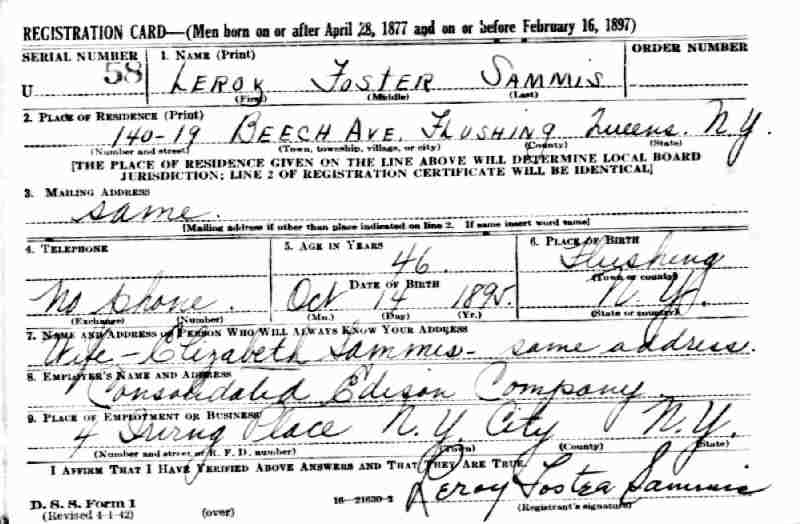 REGISTRATION CARD—(Men born on or after April 28, 1877 and on or before February 16, 1897)
SERIAL NUMBER 1. NAME (Print) ORDER NUMBER
U 58 LEROY FOSTER SAMMIS
(First) (Middle) (Last)
2. PLACE OF RESIDENCE (Print)
140-19 BEECH AVE. FLUSHING Queens. N.Y.
(Number and street) (Town, township, village, or city) (County) (State)
[THE PLACE OF RESIDENCE GIVEN ON THE LINE ABOVE WILL DETERMINE LOCAL BOARD
JURISDICTION; LINE 2 OF REGISTRATION CERTIFICATE WILL BE IDENTICAL]
3. MAILING ADDRESS
same.
[Mailing address if other than place indicated on line 2. If same insert word same]
4. TELEPHONE 5. AGE IN YEARS 6. PLACE OF BIRTH
46. Flushing
DATE OF BIRTH (Town or county)
No phone. Oct 14 1895. N.Y.
(Exchange) (Number) (Mo.) (Day) (Yr.) (State or country)
7. NAME AND ADDRESS OF PERSON WHO WILL ALWAYS KNOW YOUR ADDRESS
Wife - Elizabeth Sammis - same address.
8. EMPLOYER'S NAME AND ADDRESS
Consolidated Edison Company
9. PLACE OF EMPLOYMENT OR BUSINESS
4 Irving Place N.Y. City N.Y.
(Number and street or R. F. D. number) (County) (State)
I AFFIRM THAT I HAVE VERIFIED ABOVE ANSWERS AND THAT THEY ARE TRUE.
Leroy Foster Sammis
D. S. S. Form 1 16—21630-2 (Registrant's signature)
(Revised 4-1-42) (over)